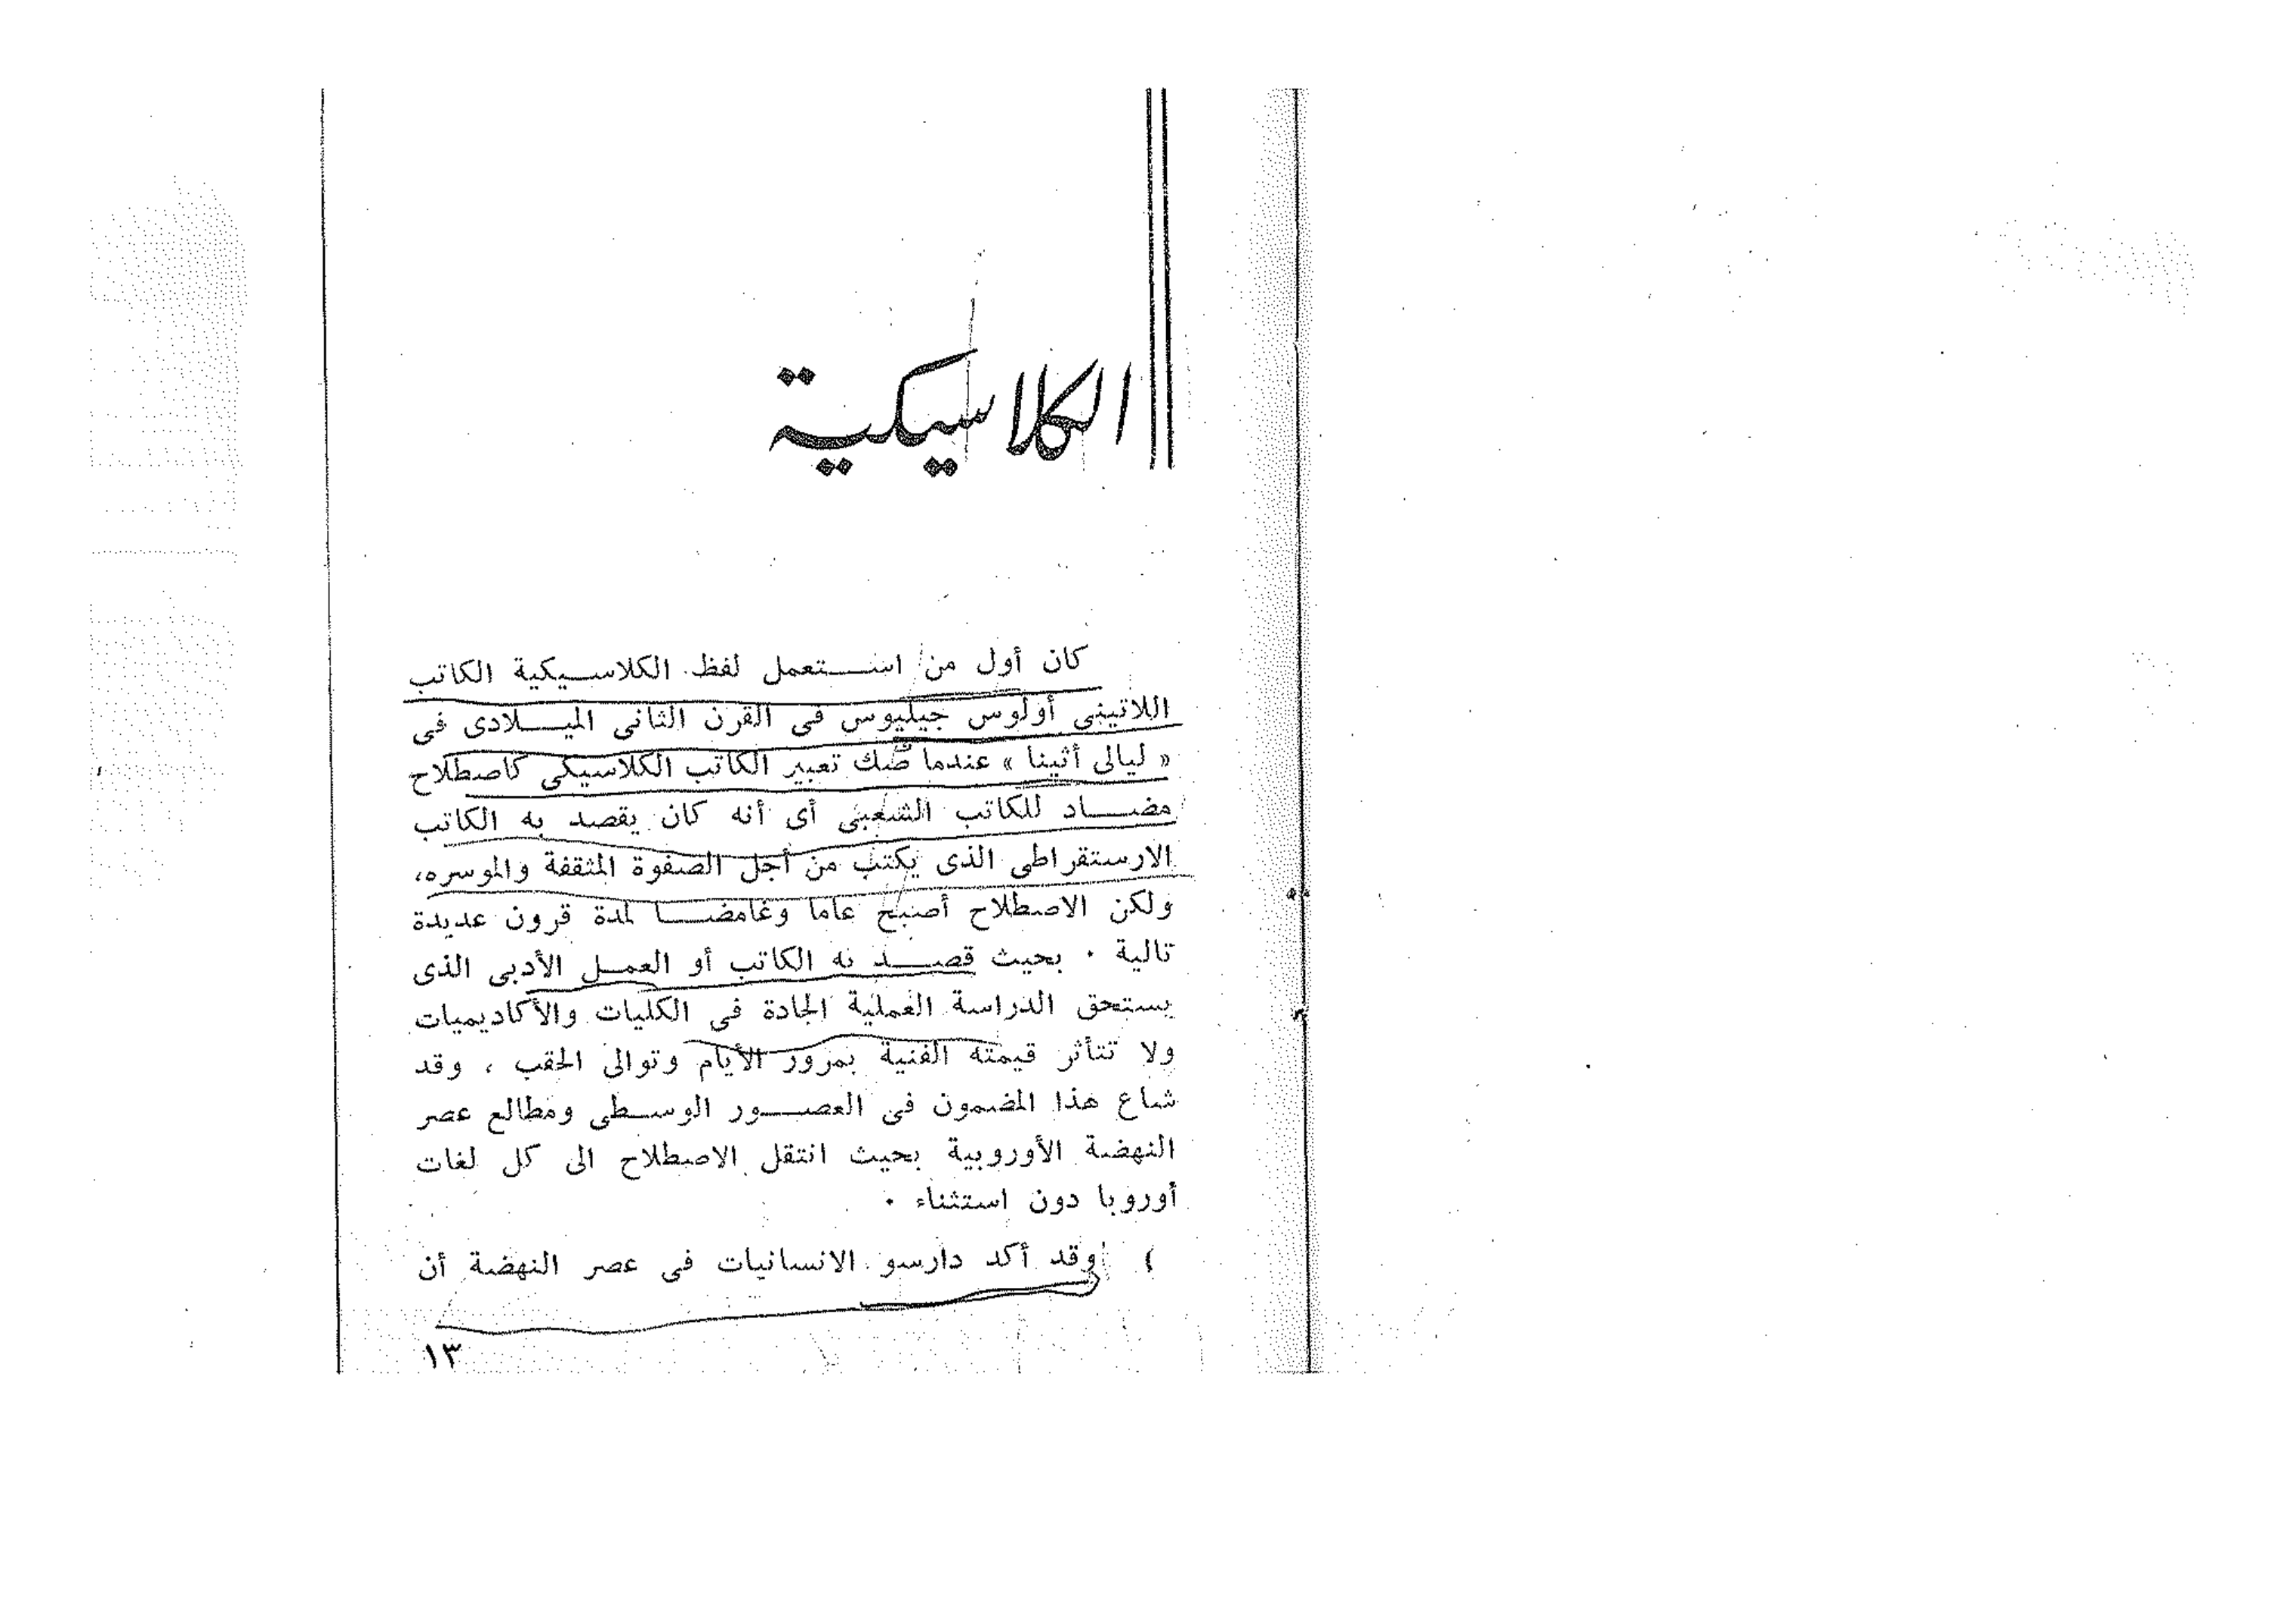 الكلاسيكية
كان أول من استعمل لفظ الكلاسيكية الكاتب
اللاتينى أولوس جيليوس فى القرن الثانى الميلادى فى
« ليالى أثينا » عندما صك تعبير الكاتب الكلاسيكى كاصطلاح
مضاد للكاتب الشعبى أى أنه كان يقصد به الكاتب
الارستقراطى الذى يكتب من أجل الصفوة المثقفة والموسره،
ولكن الاصطلاح أصبح عاما وغامضا لمدة قرون عديدة
تالية . بحيث قصد به الكاتب أو العمل الأدبى الذى
يستحق الدراسة العملية الجادة فى الكليات والأكاديميات
ولا تتأثر قيمته الفنية بمرور الأيام وتوالى الحقب ، وقد
شاع هذا المضمون فى العصور الوسطى ومطالع عصر
النهضة الأوروبية بحيث انتقل الاصطلاح الى كل لغات
أوروبا دون استثناء .
وقد أكد دارسو الانسانيات فى عصر النهضة أن
١٣